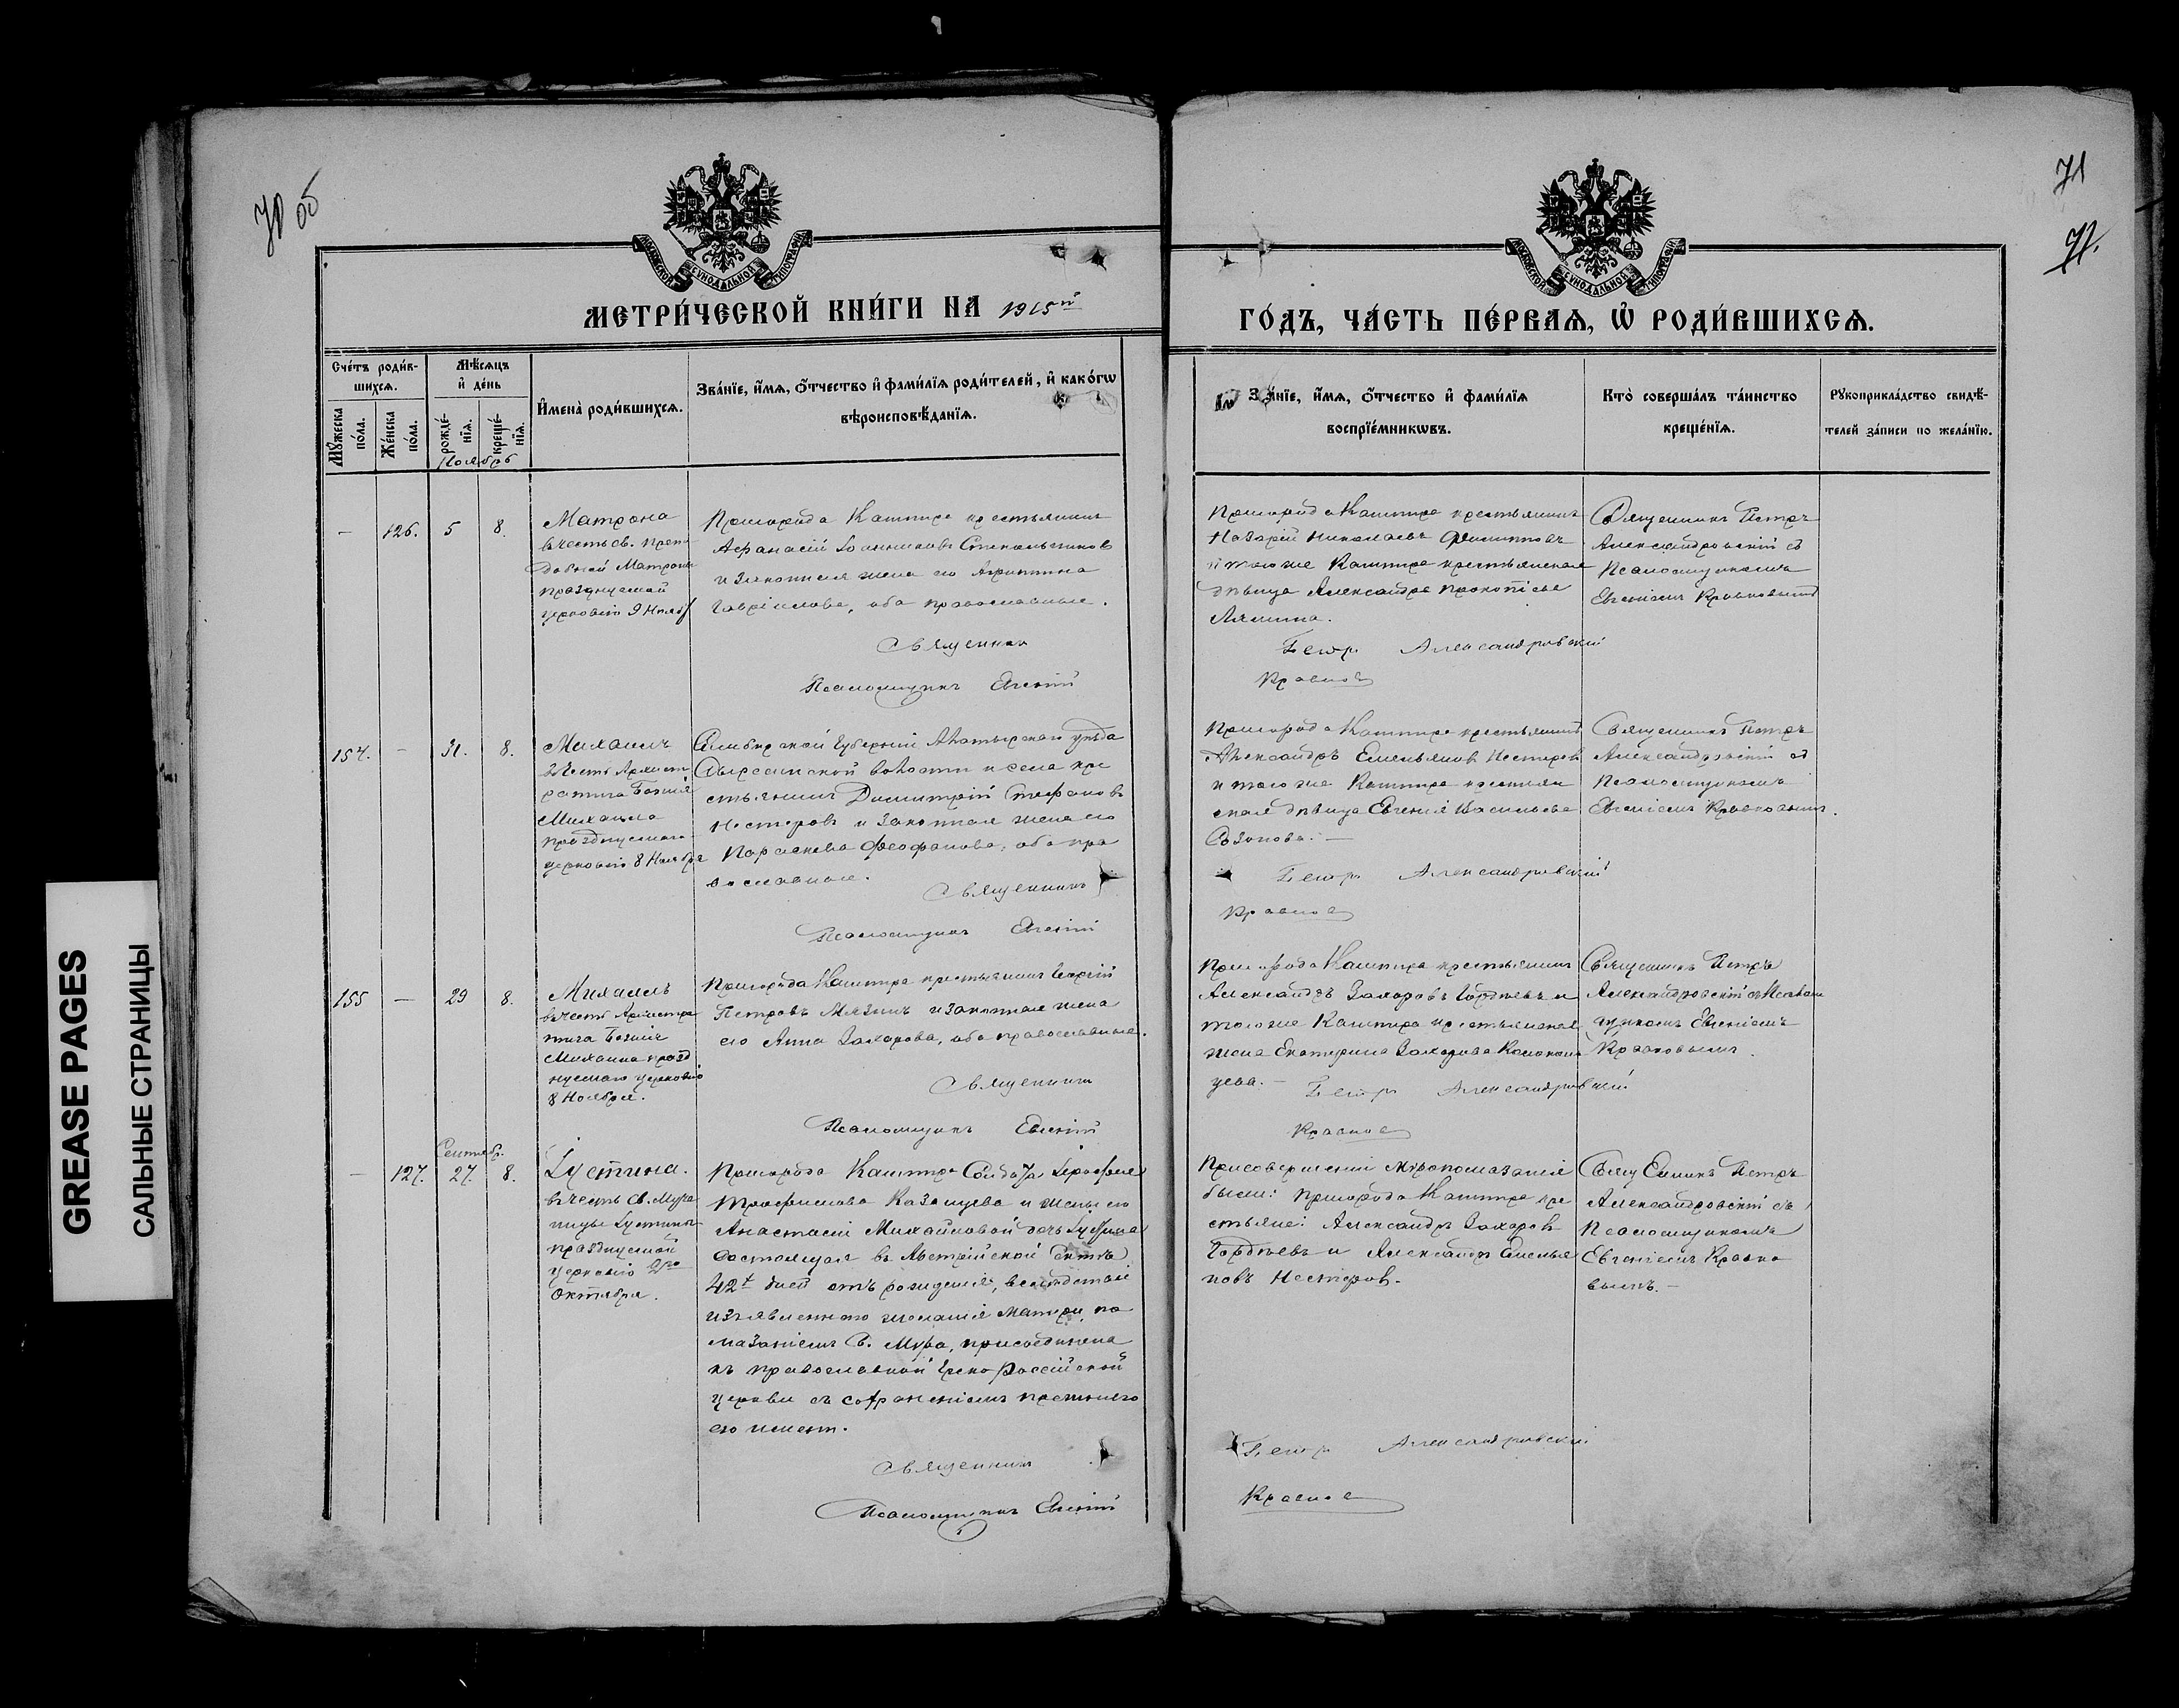 70 об
71
МОСКОВСКОЙ СѴНОДАЛЬНОЙ ТИПОГРАФІИ
МОСКОВСКОЙ СѴНОДАЛЬНОЙ ТИПОГРАФІИ
МЕТРИ́ЧЕСКОЙ КНИ́ГИ НА 1915й
ГО́ДЪ, ЧА́СТЬ ПЕ́РВАѦ, Ѡ҆ РОДИ́ВШИХСѦ.
Сче́тъ роди́в-
шихсѧ.
Мꙋ́жеска
по́ла.
Же́нска
по́ла.
Мѣ́сѧцъ
и҆ де́нь
рожде́-
нїѧ.
креще́-
нїѧ.
Ноябрь
И҆мена̀ роди́вшихсѧ.
Зва́нїе, и҆́мѧ, ѻ҆́тчество и҆ фами́лїѧ роди́телей, и҆ како́гѡ
вѣроисповѣ́данїѧ.
Зва́нїе, и҆́мѧ, ѻ҆́тчество и҆ фами́лїѧ
воспрїе́мникѡвъ.
Кто̀ соверша́лъ та́инство
креще́нїѧ.
Рꙋкоприкла́дство свидѣ́-
телей за́писи по жела́нїю.
— 126. 5 8.
Матрона
въ честь св. препо
добной Матроны
празднуемой
церковію 9 Ноябр
Пригорода Кашпира крестьянинъ
Афанасій Іоанниковъ Стекольщиковъ
и законная жена его Агриппина
Гавріилова, оба православные.
Священник
Псаломщикъ Евгеній
Пригорода Кашпира крестьянинъ
Назарій Николаевъ Филипповъ
и того же Кашпира крестьянская
дѣвица Александра Прокопіева
Лямина.
Петр Александровский
Краснов
Священникъ Петръ
Александровскій съ
Псаломщикомъ
Евгеніемъ Красновымъ
154. — 31. 8.
Михаилъ
въ честь Архист
ратига Божія
Михаила
празднуемаго
церковію 8 Ноября
Симбирской Губерніи уѣзда
волости и села кре
стьянинъ Димитрій Стефановъ
Нестеровъ и законная жена его
Параскева Феофанова, оба пра
вославные.
Священникъ
Псаломщикъ Евгеній
Пригорода Кашпира крестьянинъ
Александръ Емельяновъ Нестеровъ
и того же Кашпира крестьян
ская дѣвица Евгенія Васильева
Созонова. —
Петр Александровский
Краснов
Священникъ Петръ
Александровскій съ
Псаломщикомъ
Евгеніемъ Красновымъ.
155 — 29 8.
Михаилъ
въ честь Архистра
тига Божія
Михаила празд
нуемаго церковію
8 Ноября.
Пригорода Кашпира крестьянинъ Георгій
Петровъ Мязинъ и законная жена
его Анна Захарова, оба православные.
Священникъ
Псаломщикъ Евгеній
Пригорода Кашпира крестьянинъ
Александръ Захаровъ Гордѣевъ и
того же Кашпира крестьянская
жена Екатерина Захарова
цева. —
Петр Александровский
Краснов
Священникъ Петръ
Александровскій съ Псалом
щикомъ Евгеніемъ
Красновымъ.
Сентябр.
— 127. 27. 8.
Іустина.
въ честь Св. Муче
ницы Іустины
празднуемой
церковію 2го
Октября.
Пригорода Кашпира Солдата
Трофимова Казанцева и жены его
Анастасіи Михайловой дочь Іустина
состоящая въ Австрійской сектѣ
42х дней отъ рожденія, вслѣдствіе
изъявленнаго желанія матери, по
мазаніемъ Св. Мѵра, присоединена
къ православной Греко-Россійской
Церкви съ сохраненіемъ прежняго
его имени.
Священникъ
Псаломщикъ Евгеній
При совершеніи мѵропомазанія
были: Пригорода Кашпира кре
стьяне: Александръ Захаровъ
Гордѣевъ и Александръ Емелья
новъ Нестеров. —
Петр Александровский
Краснов
Священникъ Петръ
Александровскій съ
Псаломщикомъ
Евгеніемъ Красно
вымъ. —
GREASE PAGES
САЛЬНЫЕ СТРАНИЦЫ